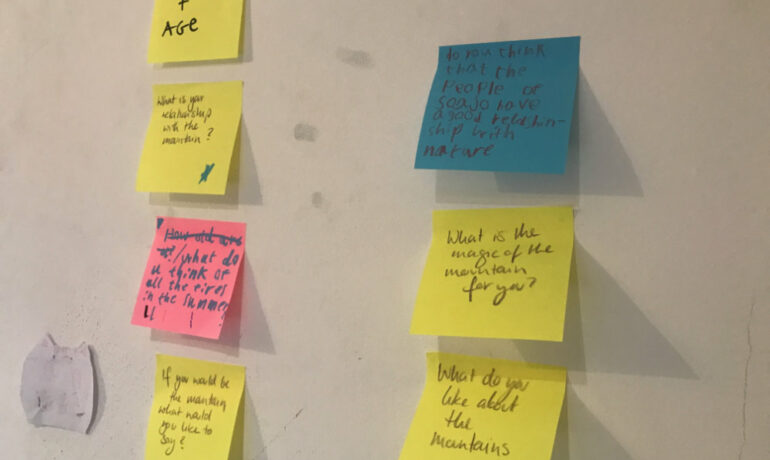 +
AGE
What is your
relationship
with the
maintain?
How old are
u?/what do
u think of
all the fires
in the summer?
If you would be
the mantain
what would
you like to
say?
do you think
that the
People of
soajo have
a good relatshin-
ship with
nature
What is the
magic of the
mountain
for you?
What do you
like about
the
mantains